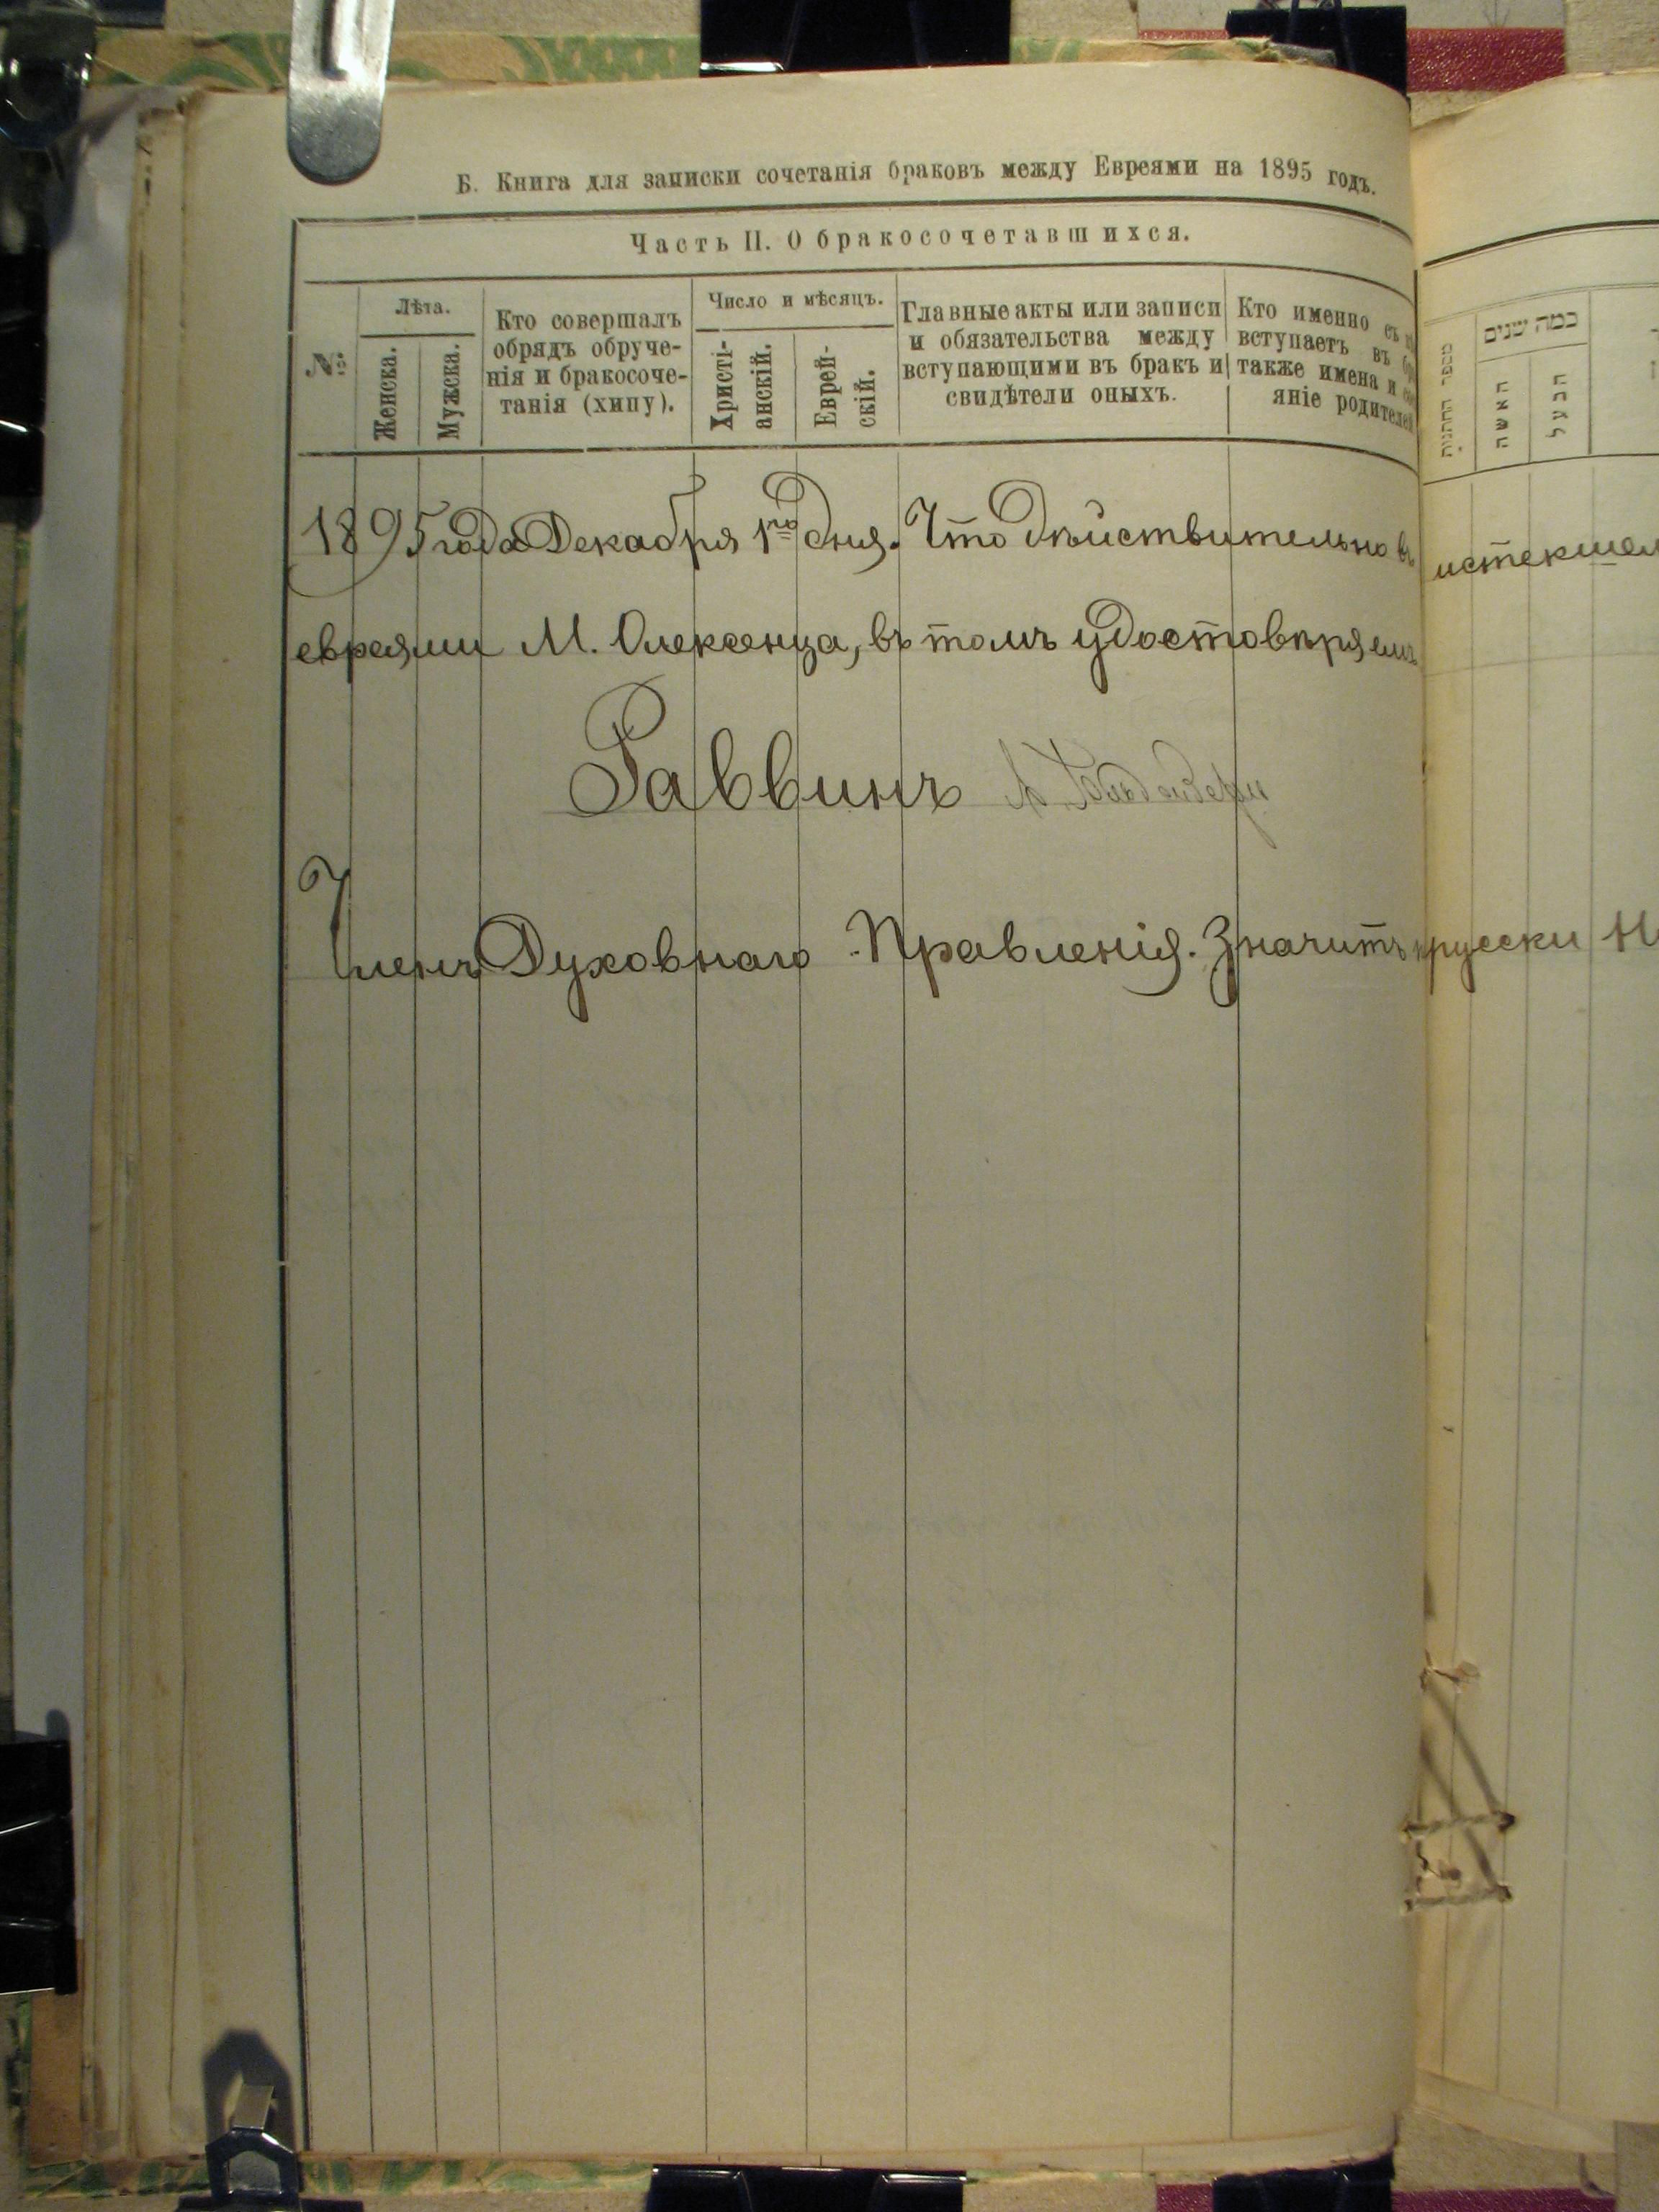 Б. Книга для записки сочетанія браковъ между Евреями на 1895 годъ.
Часть II. О бракосочетавшихся.
№
Лѣта.
Женска.
Мужска.
Кто совершалъ
обрядъ обруче-
нія и бракосоче-
танія (хипу).
Число и мѣсяцъ.
Христі-
анскій.
Еврей-
скій.
Главные акты или записи
и обязательства между
вступающими въ бракъ и
свидѣтели оныхъ.
Кто именно съ
вступаетъ въ
также имена и
яніе родителей
כמה שנים
האשה
הבעל
1895 года Декабря 1го дня. Что дѣйствительно въ истекшем
евреями М. Олексенца, въ томъ удостовѣряемъ
Раввинъ
Членъ Духовнаго Правленія. Значитъ прусски